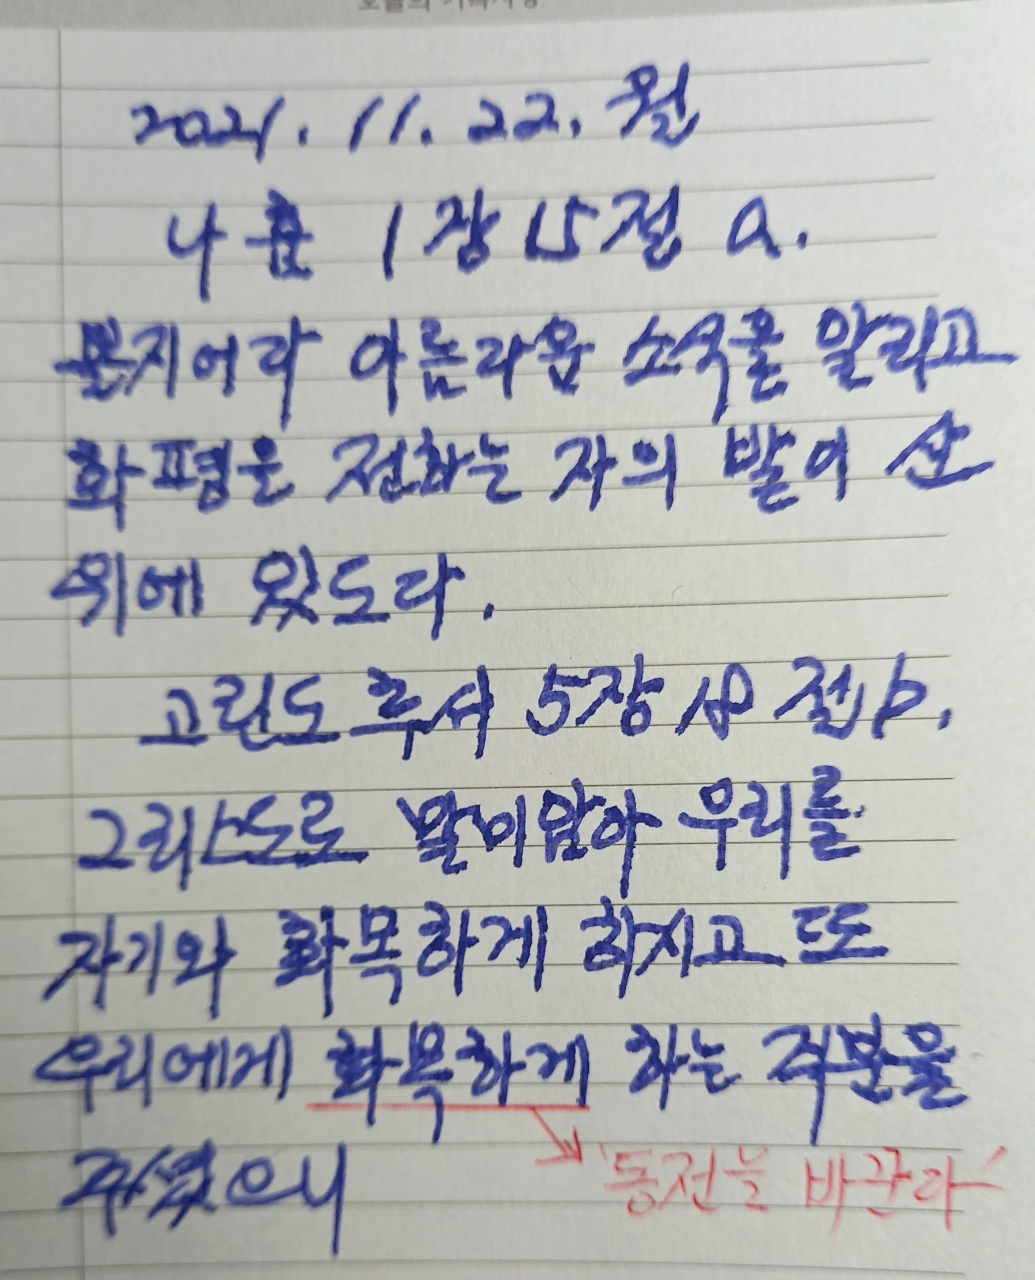 2021. 11. 22. 월
나훔 1장 15절 a.
볼지어라 아름다운 소식을 알리고
화평을 전하는 자의 발이 산
위에 있도다.
고린도 후서 5장 18절 b.
그리스도로 말미암아 우리를
자기와 화목하게 하시고 또
우리에게 화목하게 하는 직분을
주셨으니
'동전을 바꾼다'